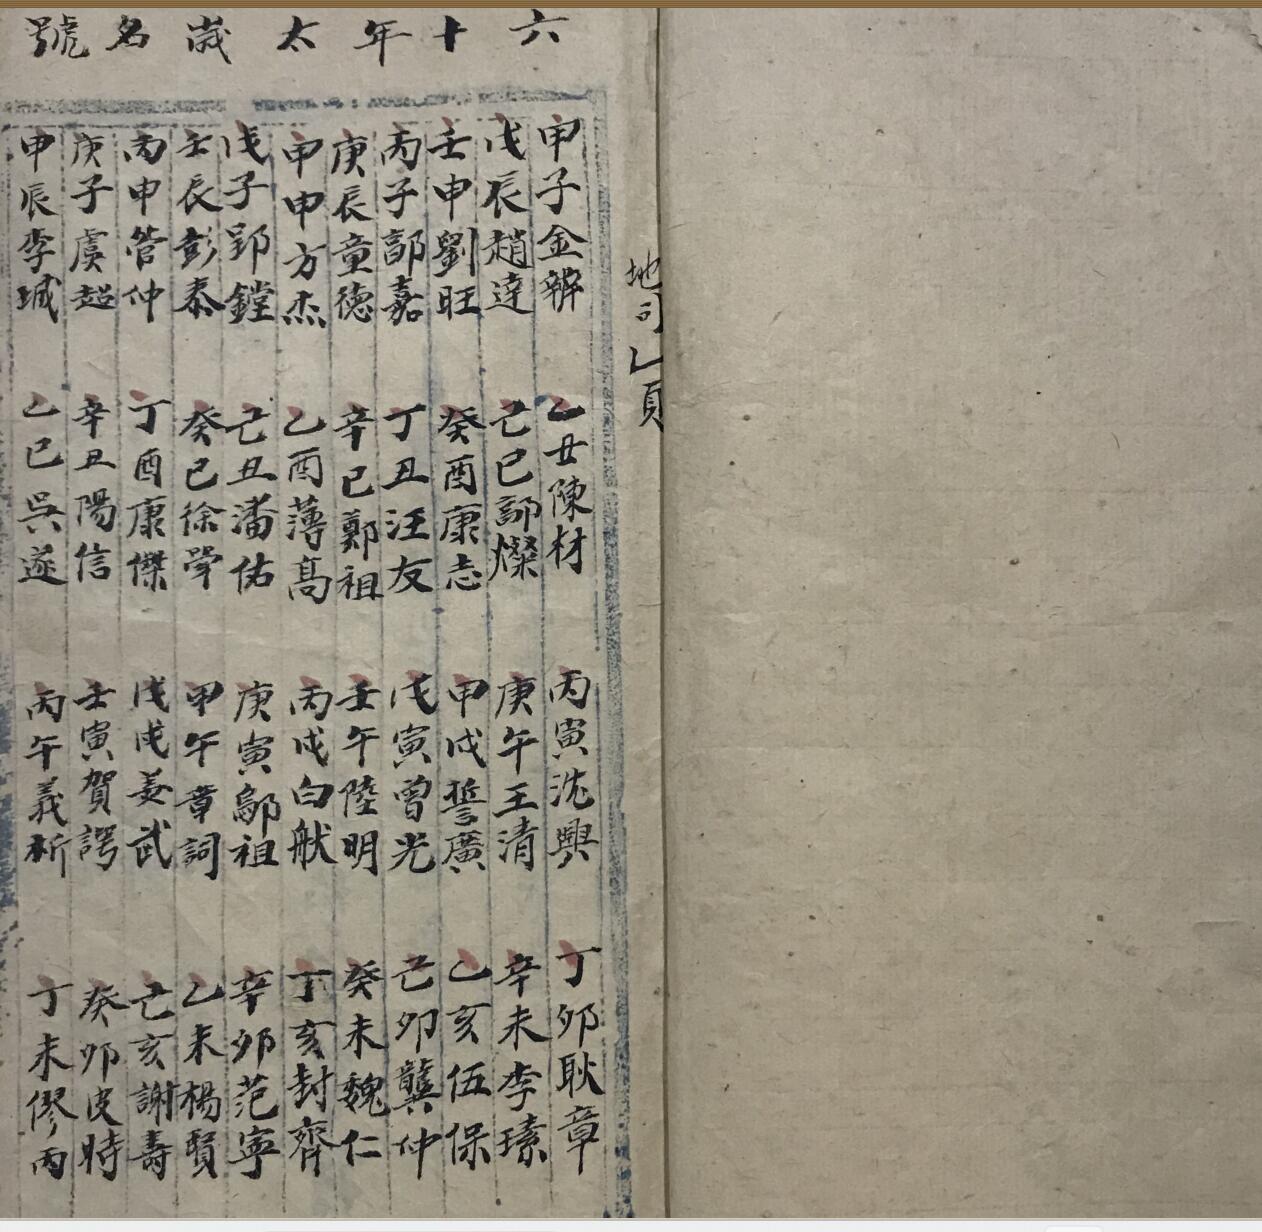 六十年太歲名號
甲子金辦
乙丑陳材
丙寅沈興
丁卯耿章
戊辰趙達
己巳郭燦
庚午王清
辛未李瑧
壬申劉旺
癸酉康志
甲戌誓廣
乙亥伍保
丙子郭嘉
丁丑汪友
戊寅曾光
己卯龔仲
庚辰童德
辛巳鄭祖
壬午陸明
癸未魏仁
甲申方杰
乙酉薄高
丙戌白
丁亥封齊
戊子郢鏜
己丑潘佑
庚寅鄔祖
辛卯范寧
壬辰彭泰
癸巳徐
甲午章詞
乙未楊賢
丙申管仲
丁酉康傑
戊戌姜武
己亥謝壽
庚子虞超
辛丑陽信
壬寅賀諤
癸卯皮時
甲辰李珹
乙巳吳遂
丙午義析
丁未僇丙
地司乙頁